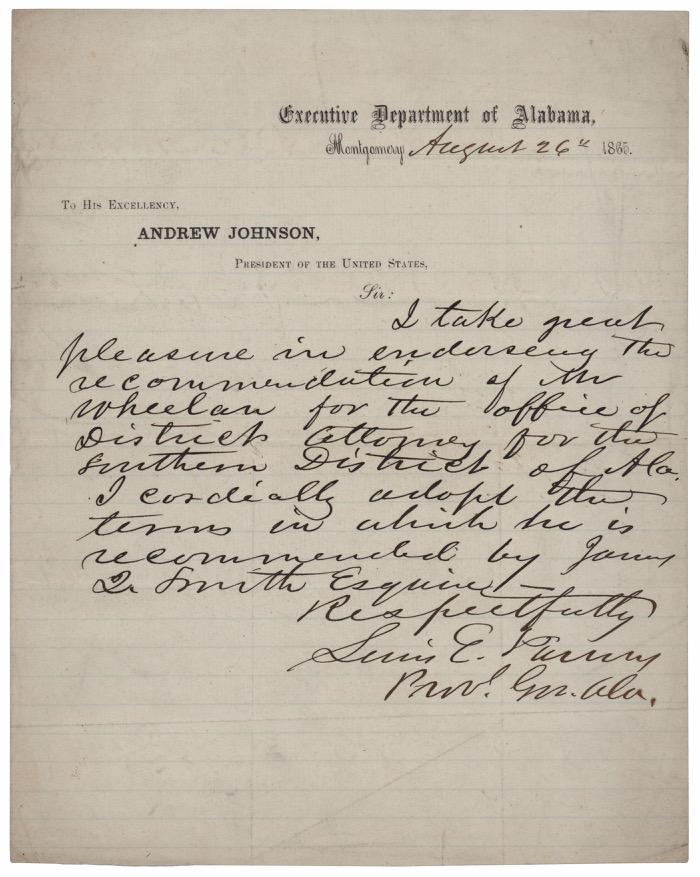 Executive Department of Alabama,
Montgomery August 26th 1865.
To His Excellency,
ANDREW JOHNSON,
President of the United States,
Sir:
I take great
pleasure in endorseing the
recommendation of Mr
Wheelan for the office of
District Attorney for the
Southern District of Ala.
I cordially adopt the
terms in which he is
recommended by James
Q. Smith Esquire –
Respectfully
Lewis E. Parsons
Provl. Gov. Ala.